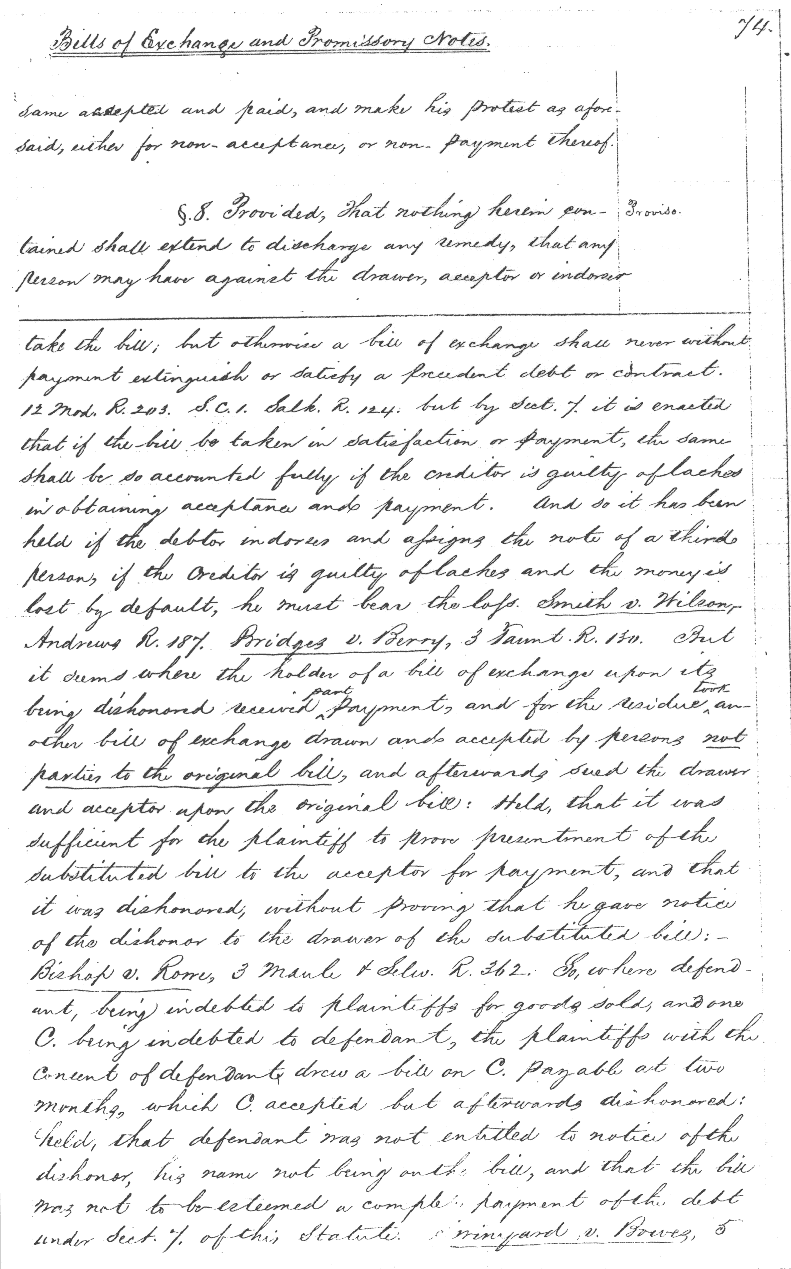 74.
Bills of Exchange and Promissory Notes.
same accepted and paid, and make his protest as afore-
said, either for non-acceptance, or non-payment thereof.
§.8. Provided, That nothing herein con-
Proviso.
tained shall extend to discharge any remedy, that any
person may have against the drawer, acceptor or indorser
take the bill; but otherwise a bill of exchange shall never without
payment extinguish or satisfy a precedent debt or contract.
12 Mod. R. 203. S.C. 1. Salk. R. 124. but by Sect. 7. it is enacted
that if the bill be taken in satisfaction or payment, the same
shall be so accounted fully if the creditor is guilty of laches
in obtaining acceptance and payment. And so it has been
held if the debtor indorses and assigns the note of a third
person, if the Creditor is guilty of laches and the money is
lost by default, he must bear the loss. Smith v. Wilson,
Andrews R. 187. Bridges v. Berry, 3 Taunt. R. 130. But
it seems where the holder of a bill of exchange upon its
being dishonored received part payment, and for the residue took an-
other bill of exchange drawn and accepted by persons not
parties to the original bill, and afterwards sued the drawer
and acceptor upon the original bill: Held, that it was
sufficient for the plaintiff to prove presentment of the
substituted bill to the acceptor for payment, and that
it was dishonored, without proving that he gave notice
of the dishonor to the drawer of the substituted bill:-
Bishop v. Rowe, 3 Maule & Selw. R. 362. So, where defend-
ant, being indebted to plaintiffs for goods sold, and one
C. being indebted to defendant, the plaintiffs with the
consent of defendants drew a bill on C. payable at two
months, which C. accepted but afterwards dishonored:
held, that defendant was not entitled to notice of the
dishonor, his name not being on the bill, and that the bill
was not to be esteemed a comple payment of the debt
under Sect. 7. of this Statute. winyard v. Bowes, 5